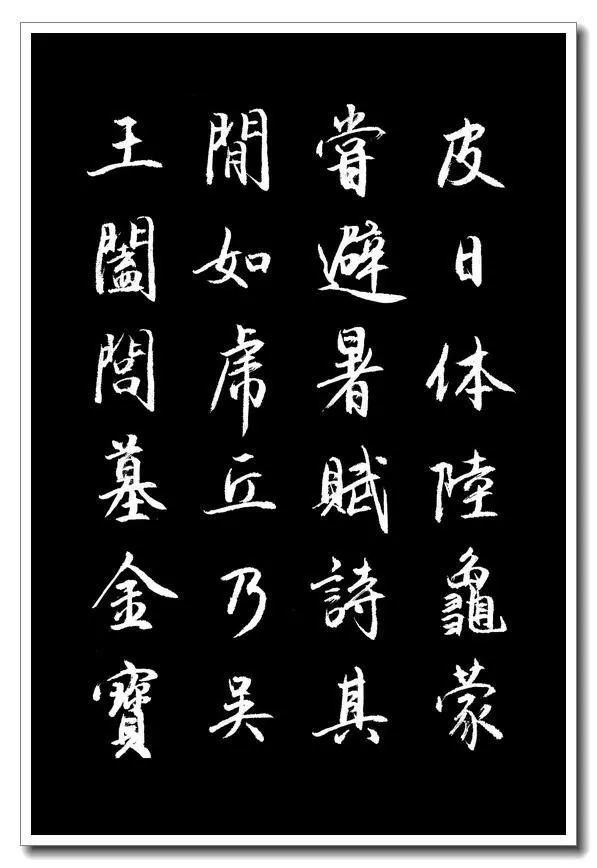 皮日体陸龜蒙
嘗避暑賦詩其
間如虎丘乃吳
王闔閭墓金寶